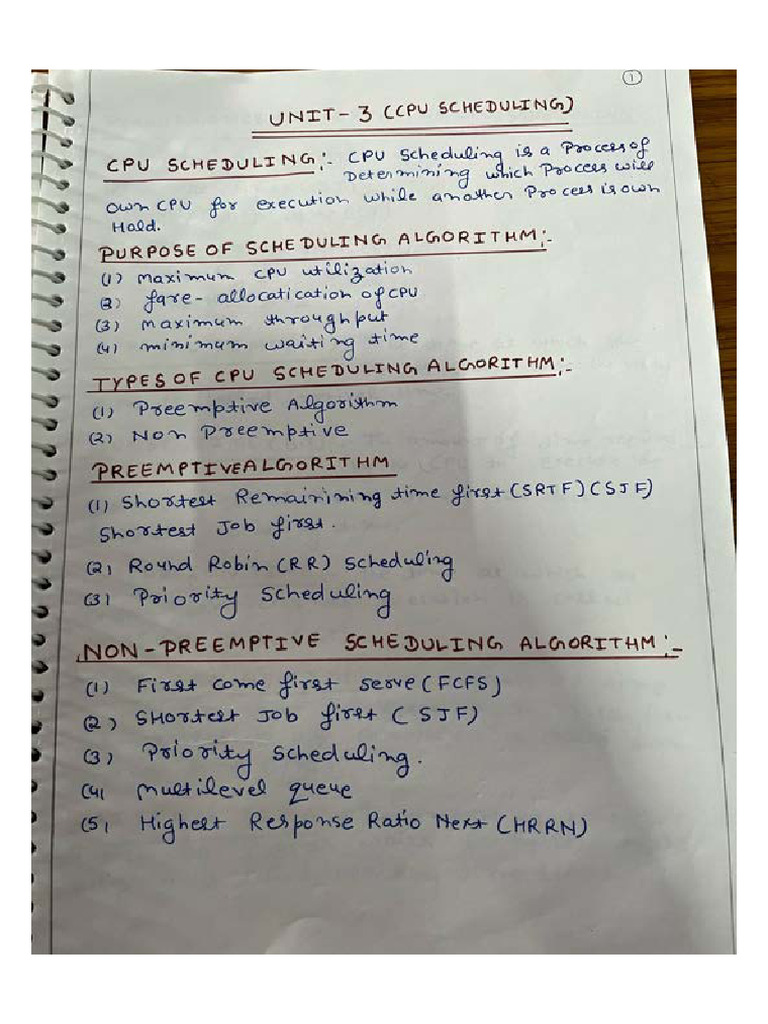 1
UNIT - 3 (CPU SCHEDULING)
CPU SCHEDULING :- CPU Scheduling is a Process of
Determining which Process will
own CPU for execution while another Process is own
Hold.
PURPOSE OF SCHEDULING ALGORITHM:-
(1) Maximum CPU utilization
(2) fare - allocatication of CPU
(3) Maximum throughput
(4) minimum waiting time
TYPES OF CPU SCHEDULING ALGORITHM:-
(1) Preemptive Algorithm
(2) Non Preemptive
PREEMPTIVE ALGORITHM
(1) Shortest Remainining time first (SRTF) (SJF)
Shortest Job first.
(2) Round Robin (RR) Scheduling
(3) Priority Scheduling
NON-PREEMPTIVE SCHEDULING ALGORITHM:-
(1) First come first serve (FCFS)
(2) Shortest Job first (SJF)
(3) Priority Scheduling.
(4) Multilevel queue
(5) Highest Response Ratio Next (HRRN)